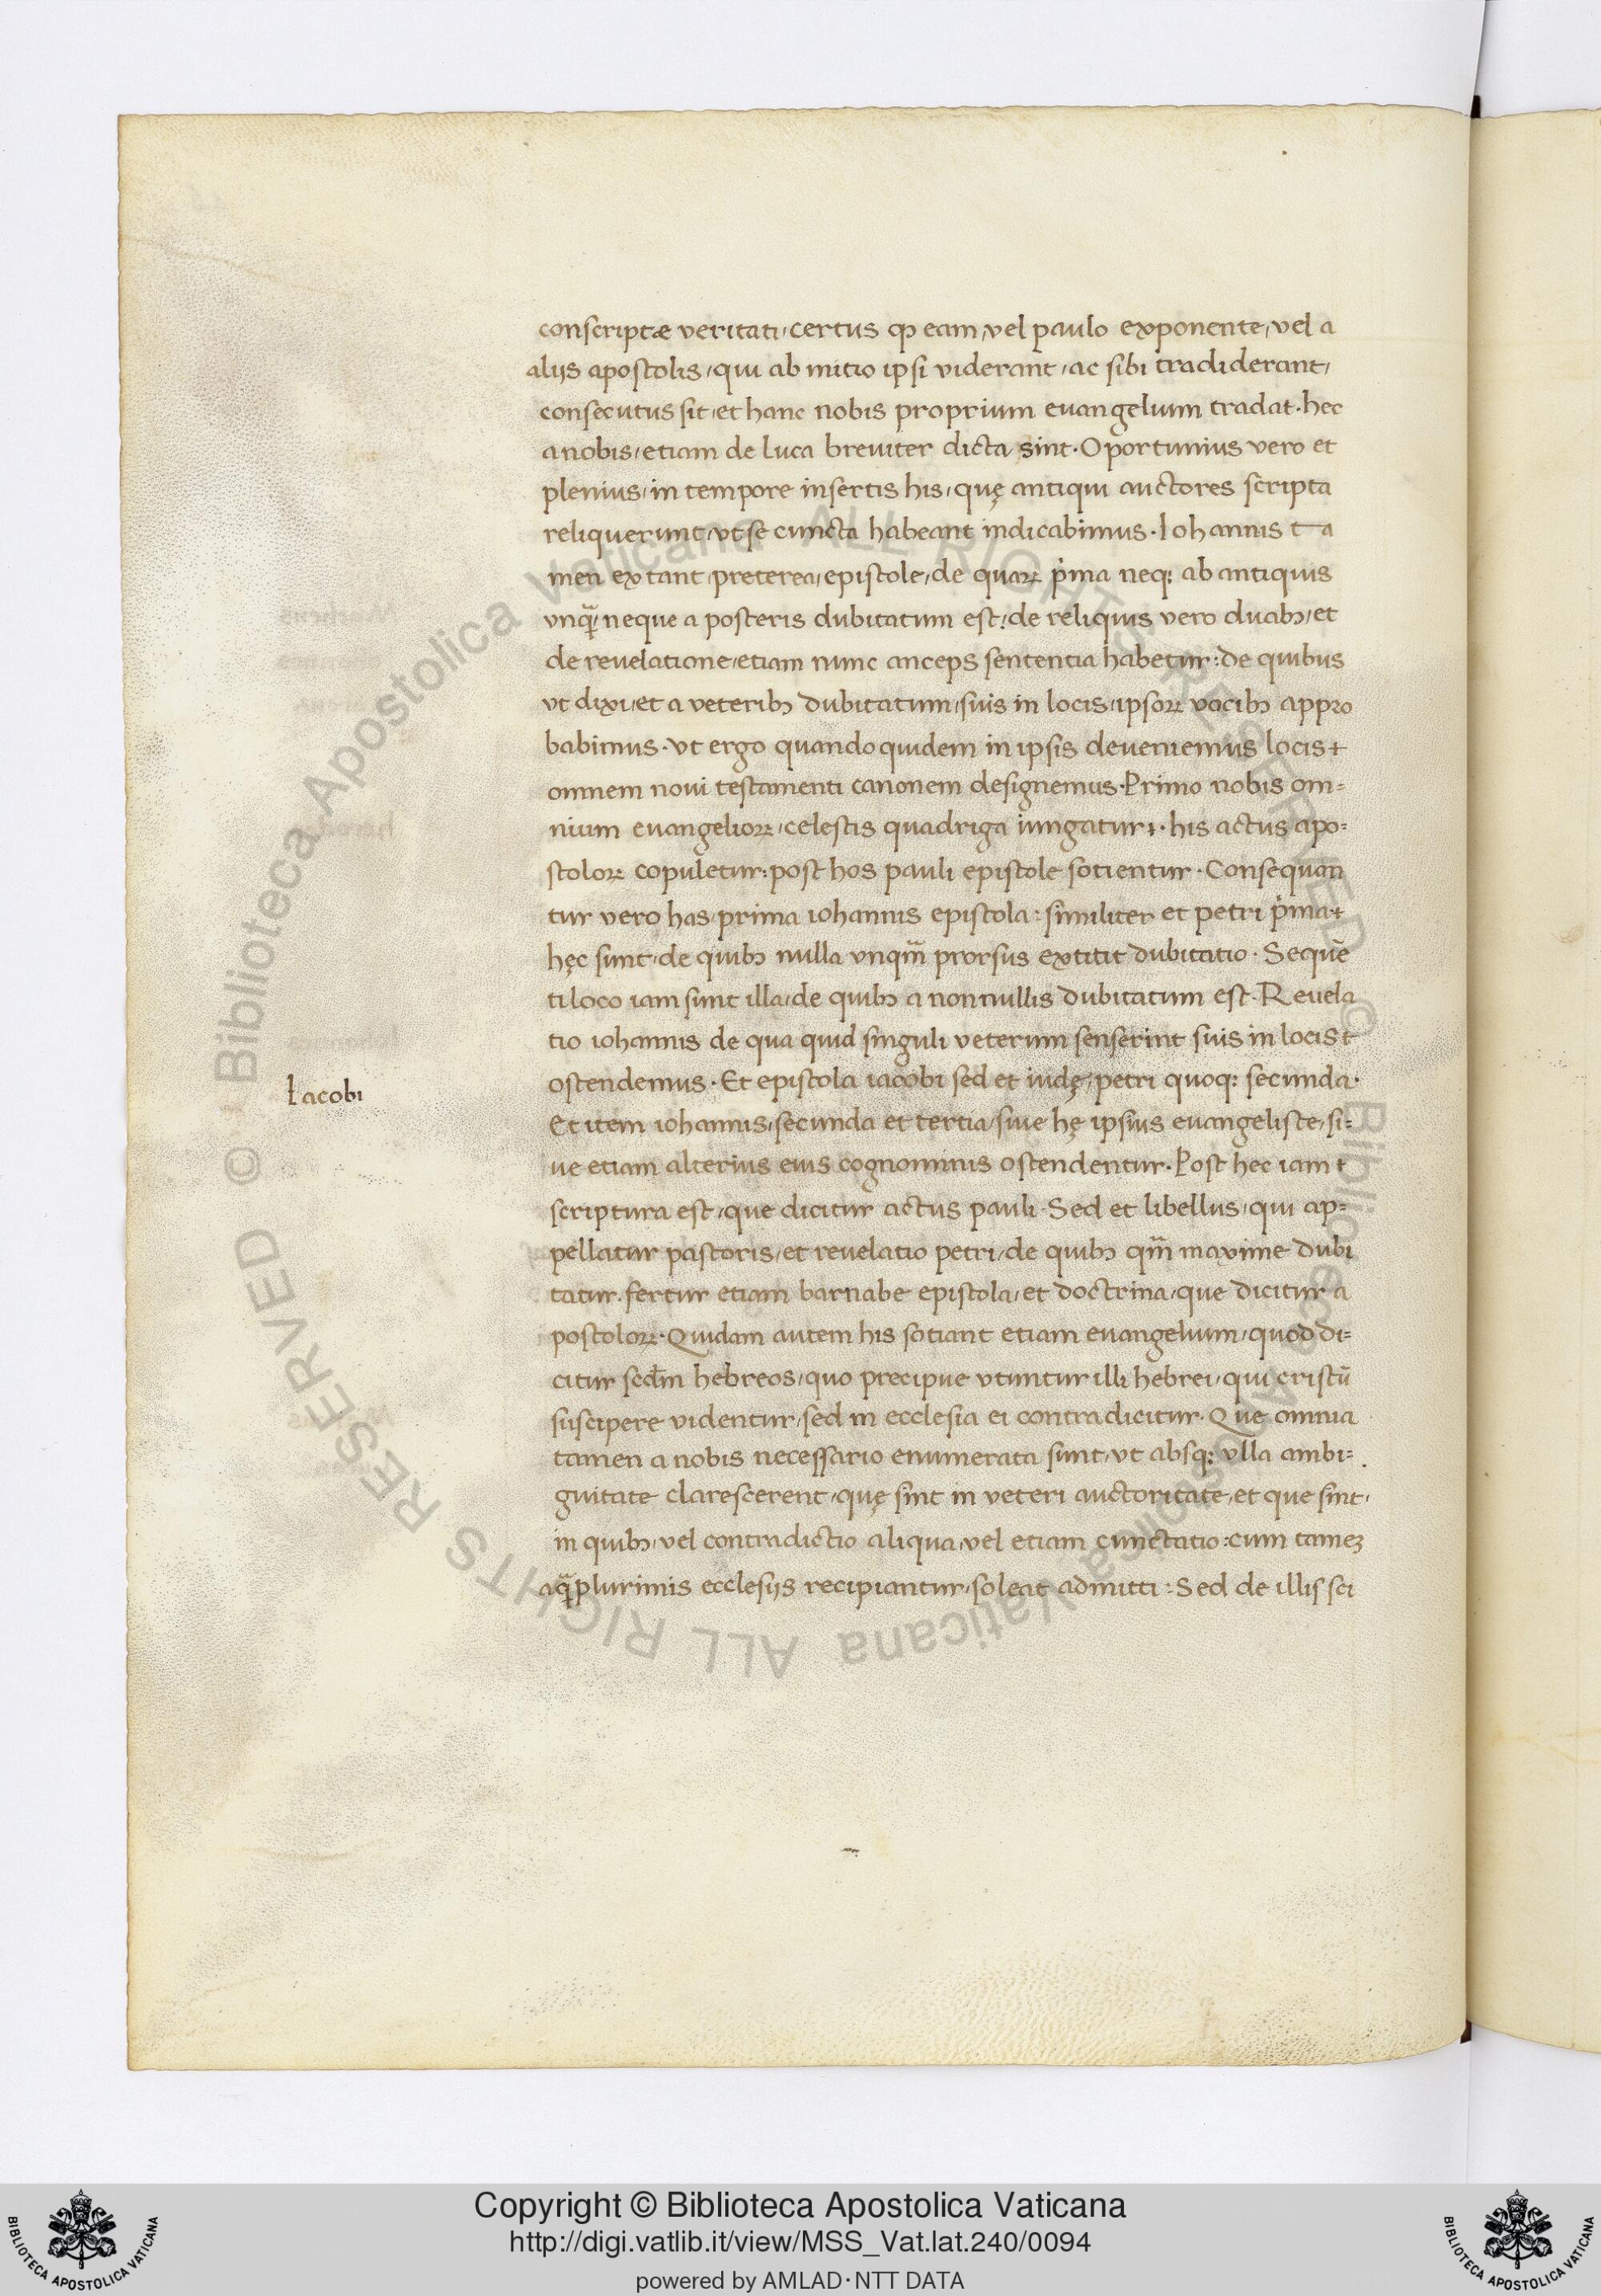 conscriptæ veritati, certus ꝙ eam, vel paulo exponente, vel a
alijs apostolis, qui ab initio ipsi viderant, ac sibi tradiderant,
consecutus sit, et hanc nobis proprium euangelium tradat. hec
a nobis, etiam de luca breuiter dicta sint. Oportunius vero et
plenius, in tempore insertis his, quę antiqui auctores scripta
reliquerunt, vt se cuncta habeant indicabimus. Iohannis ta
men extant preterea, epistole, de quaꝝ p̍ma neqꝫ ab antiquis
vnq̄ neque a posteris dubitatum est: de reliquis vero duabꝫ, et
de reuelatione, etiam nunc anceps sententia habetur: de quibus
vt dixi, et a veteribꝫ dubitatum, suis in locis, ipsoꝝ vocibꝫ appro
babimus. Vt ergo quandoquidem in ipsis deueniemus locis
omnem noui testamenti canonem designemus. Primo nobis om=
nium euangelioꝝ, celestis quadriga iungatur. his actus apo=
stoloꝝ copuletur: post hos pauli epistole sotientur. Consequan
tur vero has, prima iohannis epistola: similiter et petri p̍ma
hęc sunt, de quibꝫ nulla vnqm̄ prorsus extitit dubitatio. Sequē
ti loco iam sunt illa, de quibꝫ a nonnullis dubitatum est. Reuela
tio iohannis de qua quid singuli veterum senserint suis in locis
ostendemus. Et epistola iacobi sed et iudę, petri quoqꝫ secunda.
Iacobi
Et item iohannis, secunda et tertia, siue hę ipsius euangeliste, si=
ue etiam alterius eius cognominis ostendentur. Post hec iam
scriptura est, que dicitur actus pauli. Sed et libellus, qui ap=
pellatur pastoris, et reuelatio petri, de quibꝫ qm̄ maxime dubi
tatur. fertur etiam barnabe epistola, et doctrina, que dicitur a
postoloꝝ. Quidam autem his sotiant etiam euangelium, quod di=
citur scdm̄ hebreos, quo precipue vtuntur illi hebrei, qui cristū
suscipere videntur, sed in ecclesia ei contradicitur. Que omnia
tamen a nobis necessario enumerata sunt, vt absqꝫ vlla ambi=
guitate clarescerent, quę sint in veteri auctoritate, et que sint,
in quibꝫ, vel contradictio aliqua, vel etiam cunctatio: cum tameꝫ
a q̄ plurimis ecclesijs recipiantur, soleat admitti: Sed de illis sci
Copyright © Biblioteca Apostolica Vaticana
http://digi.vatlib.it/view/MSS_Vat.lat.240/0094
powered by AMLAD·NTT DATA
BIBLIOTECA APOSTOLICA VATICANA
BIBLIOTECA APOSTOLICA VATICANA
© Biblioteca Apostolica Vaticana ALL RIGHTS RESERVED
© Biblioteca Apostolica Vaticana ALL RIGHTS RESERVED